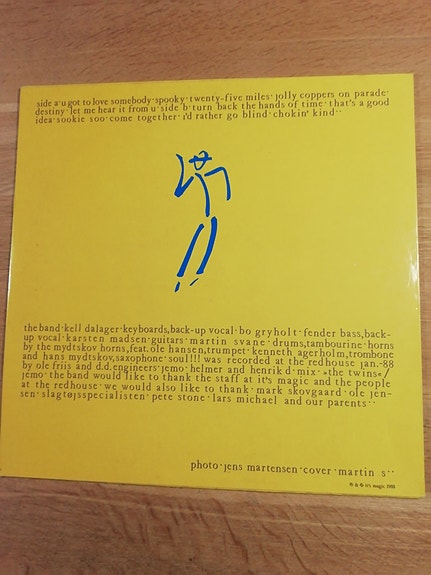 side a·u got to love somebody·spooky·twenty-five miles·jolly coppers on parade·
destiny·let me hear it from u·side b·turn back the hands of time·that's a good
idea·sookie soo·come together·i'd rather go blind·chokin' kind··
the band·kell dalager·keyboards,back-up vocal·bo gryholt·fender bass,back-
up vocal·karsten madsen·guitars·martin svane·drums,tambourine·horns
by the mydtskov horns,feat.ole hansen,trumpet·kenneth agerholm,trombone
and hans mydtskov,saxophone·soul!!! was recorded at the redhouse jan.-88
by ole friis and d.d.engineers·jemo·helmer and henrik d·mix·»the twins«/
jemo·the band would like to thank the staff at it's magic and the people
at the redhouse·we would also like to thank·mark skovgaard·ole jen-
sen·slagtøjsspecialisten·pete stone·lars michael and our parents··
photo·jens martensen·cover·martin s··
℗ & © it's magic 1988